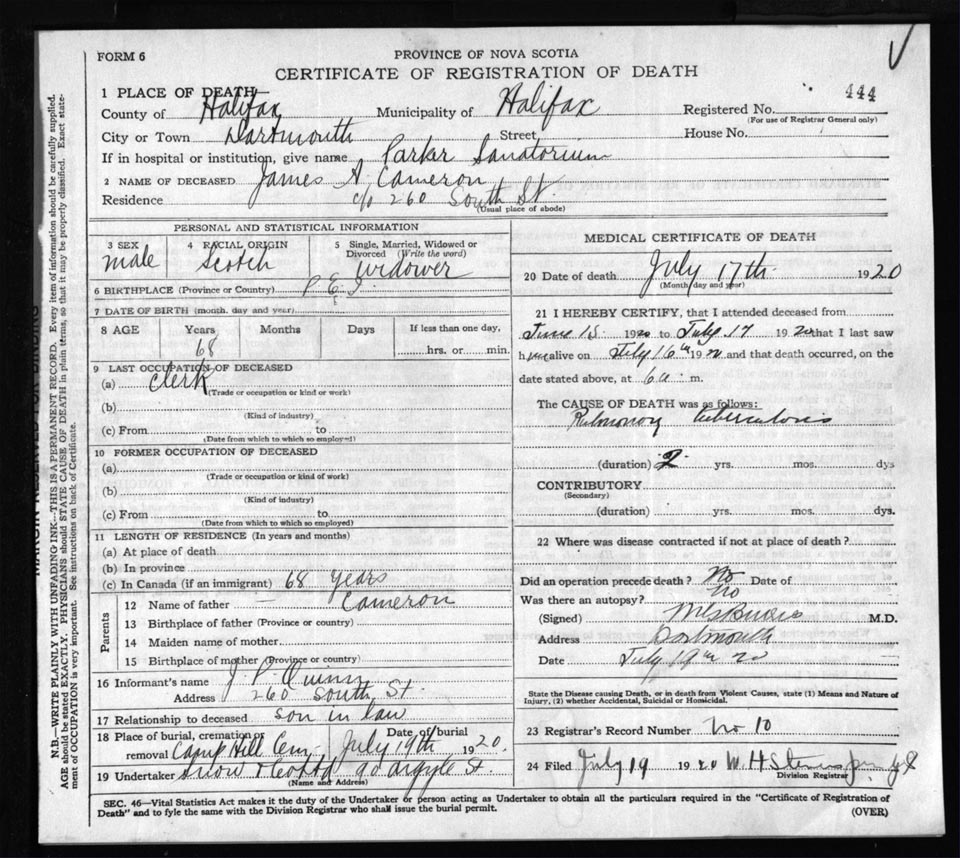 FORM 6
PROVINCE OF NOVA SCOTIA
CERTIFICATE OF REGISTRATION OF DEATH
1 PLACE OF DEATH—
County of Halifax Municipality of Halifax Registered No. 444
(For use of Registrar General only)
City or Town Dartmouth Street, House No.
If in hospital or institution, give name Parker Sanatorium
2 NAME OF DECEASED James A. Cameron
Residence c/o 260 South St.
(Usual place of abode)
PERSONAL AND STATISTICAL INFORMATION
3 SEX
male
4 RACIAL ORIGIN
Scotch
5 Single, Married, Widowed or Divorced (Write the word)
widower
6 BIRTHPLACE (Province or Country) P E I
7 DATE OF BIRTH (month, day and year)
8 AGE Years Months Days If less than one day,
68 hrs. or min.
9 LAST OCCUPATION OF DECEASED
(a) Clerk
(Trade or occupation or kind or work)
(b)
(Kind of industry)
(c) From to
(Date from which to which so employed)
10 FORMER OCCUPATION OF DECEASED
(a)
(Trade or occupation or kind of work)
(b)
(Kind of industry)
(c) From to
(Date from which to which so employed)
11 LENGTH OF RESIDENCE (In years and months)
(a) At place of death
(b) In province
(c) In Canada (if an immigrant) 68 years
Parents
12 Name of father — Cameron
13 Birthplace of father (Province or country)
14 Maiden name of mother
15 Birthplace of mother (Province or country)
16 Informant's name J. P. Quinn
Address 260 South St.
17 Relationship to deceased son in law
18 Place of burial, cremation or removal Camp Hill Cem Date of burial July 19th 1920.
19 Undertaker Snow & Co Ltd 90 Argyle St.
(Name and Address)
MEDICAL CERTIFICATE OF DEATH
20 Date of death July 17th 1920
(Month day and year)
21 I HEREBY CERTIFY, that I attended deceased from
June 15 1920 to July 17 1920 that I last saw
him alive on July 16th 1920 and that death occurred, on the
date stated above, at 6 a. m.
The CAUSE OF DEATH was as follows:
Pulmonary tuberculosis
(duration) 2 yrs. mos. dys
CONTRIBUTORY
(Secondary)
(duration) yrs. mos. dys.
22 Where was disease contracted if not at place of death?
Did an operation precede death? No Date of
Was there an autopsy? no
(Signed) M.D.
Address Dartmouth
Date July 19th 20
State the Disease causing Death, or in death from Violent Causes, state (1) Means and Nature of
Injury, (2) whether Accidental, Suicidal or Homicidal.
23 Registrar's Record Number No 10
24 Filed July 19 1920 W. H.
Division Registrar
SEC. 46—Vital Statistics Act makes it the duty of the Undertaker or person acting as Undertaker to obtain all the particulars required in the "Certificate of Registration of
Death" and to fyle the same with the Division Registrar who shall issue the burial permit. (OVER)
MARGIN RESERVED FOR BINDING
N.B.—WRITE PLAINLY WITH UNFADING INK—THIS IS A PERMANENT RECORD. Every item of information should be carefully supplied.
AGE should be stated EXACTLY. PHYSICIANS should STATE CAUSE OF DEATH in plain terms, so that it may be properly classified. Exact state-
ment of OCCUPATION is very important. See instructions on back of Certificate.